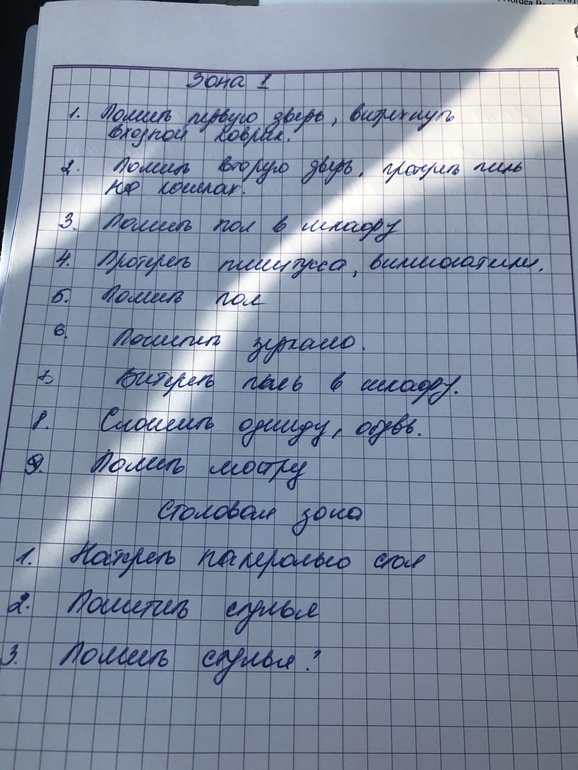 Зона 1
1. Помыть первую дверь, вытряхнуть
входной коврик.
2. Помыть вторую дверь, протереть пыль
на
3. Помыть пол в шкафу
4. Протереть плинтуса, выключатели.
5. Помыть пол
6. Почистить зеркало.
7. Вытереть пыль в шкафу.
8. Сложить одежду, обувь.
9. Помыть люстру
Столовая зона
1. Натереть стол
2. Почистить стулья
3. Помыть стулья?